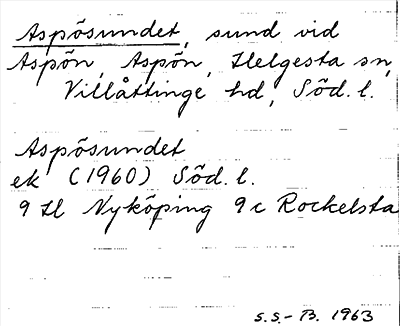 Aspösundet, sund vid
Aspön, Aspön, Helgesta sn,
Villåttinge hd, Söd. l.
Aspösundet
ek (1960) Söd. l.
9 H Nyköping 9 c Rockelsta
S.S.-B. 1963